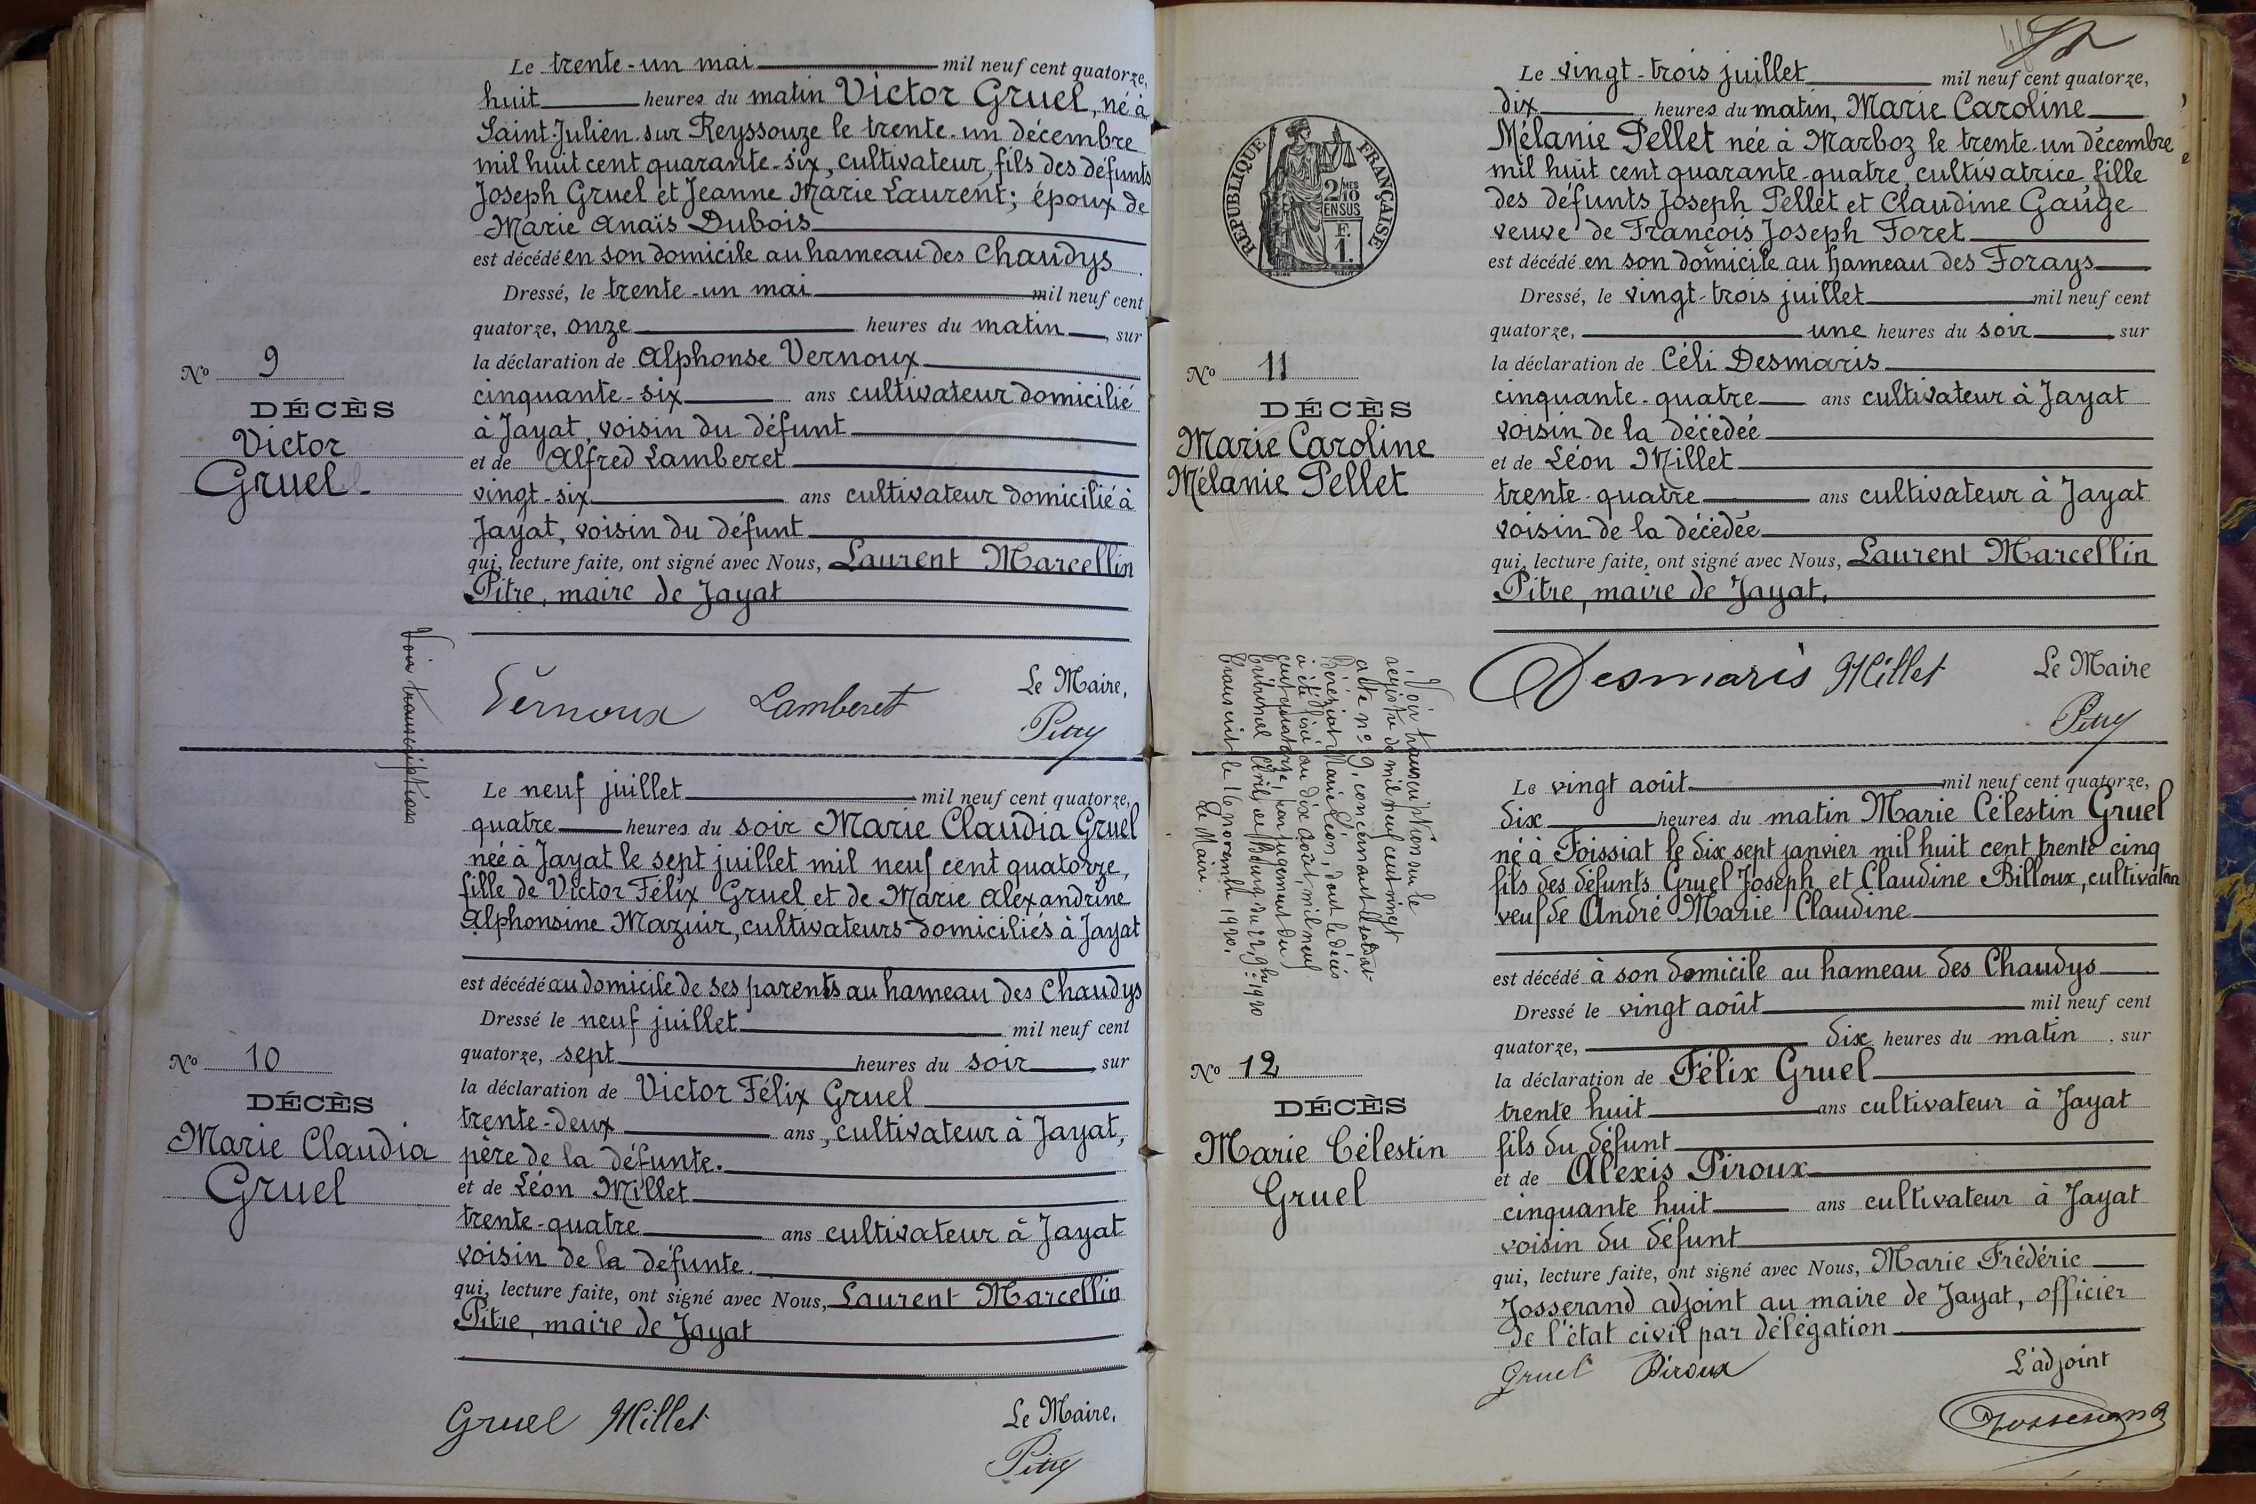 Le trente-un mai mil neuf cent quatorze,
huit heures du matin Victor Gruel, né à
Saint-Julien-sur Reyssouze le trente-un décembre
mil huit cent quarante-six, cultivateur, fils des défunts
Joseph Gruel et Jeanne Marie Laurent; époux de
Marie Anaïs Dubois
est décédé en son domicile au hameau des Chaudys
Dressé, le trente-un mai mil neuf cent
quatorze, onze heures du matin, sur
la déclaration de Alphonse Vernoux
cinquante-six ans cultivateur domicilié
à Jayat, voisin du défunt
et de Alfred Lamberet
vingt-six ans cultivateur domicilié à
Jayat, voisin du défunt
qui, lecture faite, ont signé avec Nous, Laurent Marcellin
Pitre, maire de Jayat
No 9
DÉCÈS
Victor
Gruel
Voir transcriptions
Vernoux Lamberet
Le Maire,
Pitre
Le neuf juillet mil neuf cent quatorze,
quatre heures du soir Marie Claudia Gruel
née à Jayat le sept juillet mil neuf cent quatorze,
fille de Victor Félix Gruel et de Marie Alexandrine
Alphonsine Mazuir, cultivateurs domiciliés à Jayat
est décédé au domicile de ses parents au hameau des Chaudys
Dressé le neuf juillet mil neuf cent
quatorze, sept heures du soir, sur
la déclaration de Victor Félix Gruel
trente-deux ans, cultivateur à Jayat,
père de la défunte.
et de Léon Millet
trente-quatre ans cultivateur à Jayat
voisin de la défunte.
qui, lecture faite, ont signé avec Nous, Laurent Marcellin
Pitre, maire de Jayat
No 10
DÉCÈS
Marie Claudia
Gruel
Gruel Millet
Le Maire,
Pitre
Le vingt-trois juillet mil neuf cent quatorze,
dix heures du matin, Marie Caroline
Mélanie Pellet née à Marboz le trente-un décembre
mil huit cent quarante-quatre, cultivatrice fille
des défunts Joseph Pellet et Claudine Gauge
veuve de François Joseph Foret
est décédé en son domicile au hameau des Forays
Dressé, le vingt-trois juillet mil neuf cent
quatorze, une heures du soir sur
la déclaration de Céli Desmaris
cinquante-quatre ans cultivateur à Jayat
voisin de la décédée
et de Léon Millet
trente-quatre ans cultivateur à Jayat
voisin de la décédée
qui, lecture faite, ont signé avec Nous, Laurent Marcellin
Pitre, maire de Jayat.
RÉPUBLIQUE FRANÇAISE
2 MES
10
EN SUS
F.
1.
No 11
DÉCÈS
Marie Caroline
Mélanie Pellet
Desmaris Millet
Le Maire
Pitre
Voir transcription sur le
registre de mil neuf cent vingt
acte no 9, concernant le soldat
Béréziat Marie Léon, dont le décès
a été fixé au dix août mil neuf
cent quatorze, par jugement du
tribunal civil de Bourg du 22 9bre 1920
transcrit le 16 novembre 1920.
Le Maire.
Le vingt août mil neuf cent quatorze,
dix heures du matin Marie Célestin Gruel
né à Foissiat le dix sept janvier mil huit cent trente cinq
fils des défunts Gruel Joseph et Claudine Billoux, cultivateur
veuf de André Marie Claudine
est décédé à son domicile au hameau des Chaudys
Dressé le vingt août mil neuf cent
quatorze, dix heures du matin, sur
la déclaration de Félix Gruel
trente huit ans cultivateur à Jayat
fils du défunt
et de Alexis Piroux
cinquante huit ans cultivateur à Jayat
voisin du défunt
qui, lecture faite, ont signé avec Nous, Marie Frédéric
Josserand adjoint au maire de Jayat, officier
de l'état civil par délégation
No 12
DÉCÈS
Marie Célestin
Gruel
Gruel Piroux
L'adjoint
Josserand